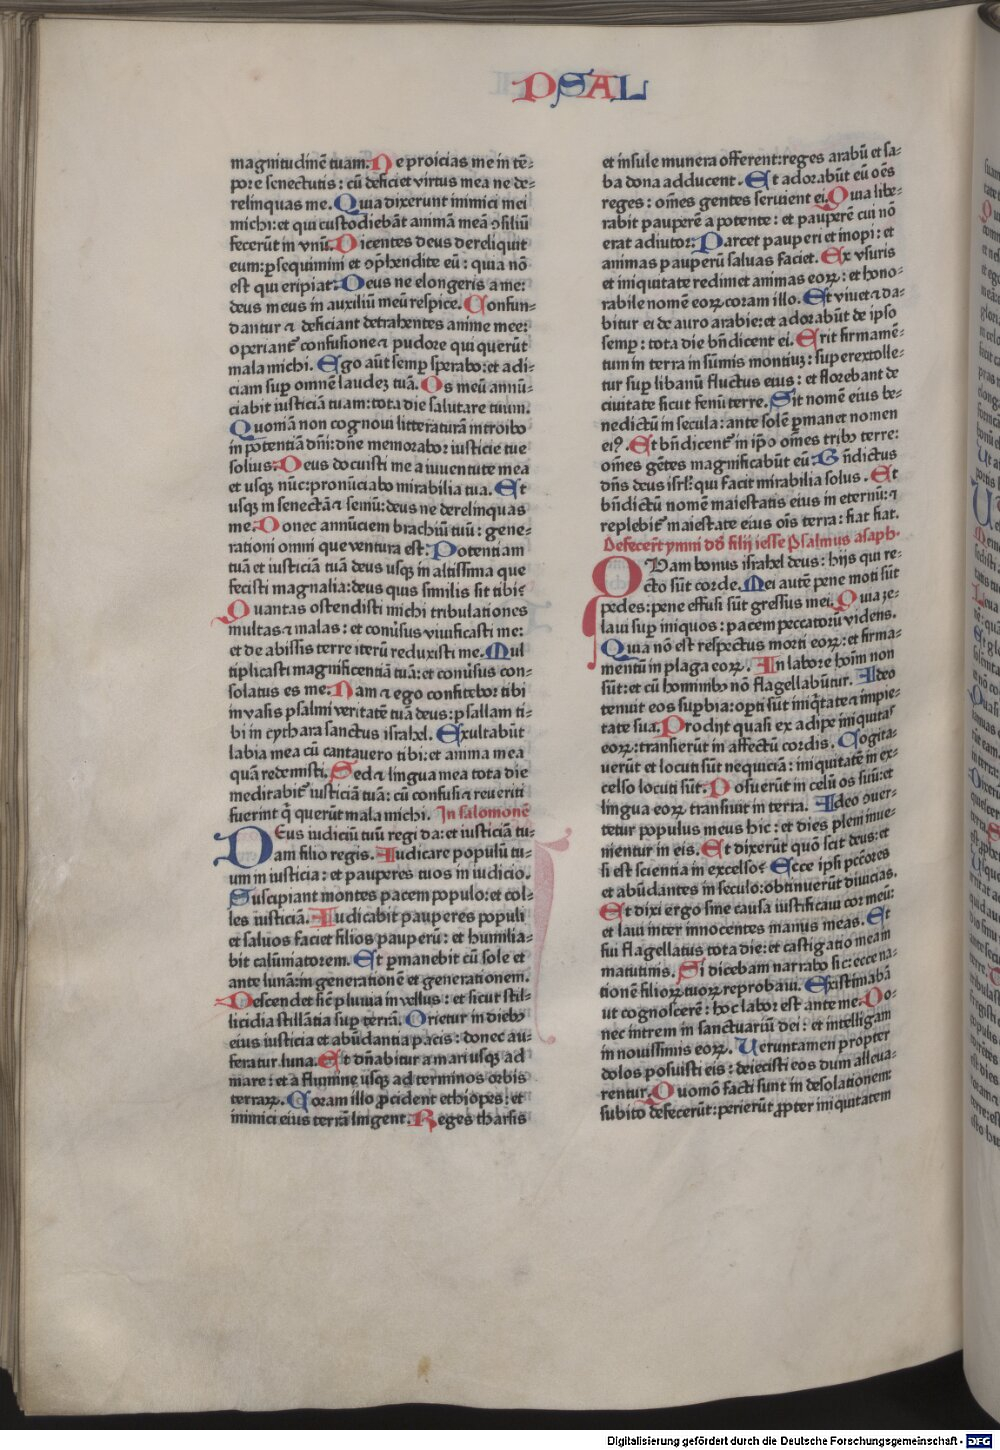 PSAL
magnitudinē tuam. Ne proicias me in tē-
pore senectutis: cū deficiet virtus mea ne de-
relinquas me. Quia dixerunt inimici mei
michi: et qui custodiebāt animā meā ꝯsiliū
fecerūt in vnū. Dicentes deus dereliquit
eum: ꝑsequimini et ꝯp̄hendite eū: quia nō
est qui eripiat: Deus ne elongeris a me:
deus meus in auxiliū meū respice. Confun-
dantur ⁊ deficiant detrahentes anime mee:
operiant᷑ confusione ⁊ pudore qui querūt
mala michi. Ego aūt semꝑ sperabo: et adi-
ciam suꝑ omnē laudeꝫ tuā. Os meū annū-
ciabit iusticiā tuam: tota die salutare tuum.
Quoniā non cognoui litteraturā introibo
in potentiā dn̄i: dn̄e memorabor iusticie tue
solius: Deus docuisti me a iuuentute mea
et usqꝫ nūc: pronūciabo mirabilia tua. Et
usqꝫ in senectā ⁊ seniū: deus ne derelinquas
me: Donec annūciem brachiū tuū: gene-
rationi omni que ventura est: Potentiam
tuā et iusticiā tuā deus usqꝫ in altissima que
fecisti magnalia: deus quis similis sit tibi?
Quantas ostendisti michi tribulationes
multas ⁊ malas: et conu̕sus viuificasti me:
et de abissis terre iterū reduxisti me. Mul
tiplicasti magnificentiā tuā: et conu̕sus con-
solatus es me: Nam ⁊ ego confitebor tibi
in vasis psalmi veritatē tuā deus: psallam ti-
bi in cythara sanctus israhel. Exultabūt
labia mea cū cantauero tibi: et anima mea
quā redemisti. Sed ⁊ lingua mea tota die
meditabit᷑ iusticiā tuā: cū confusi ⁊ reueriti
fuerint q̄ querūt mala michi. In salomonē
DEus iudiciū tuū regi da: et iusticiā tu-
am filio regis. Iudicare populū tu-
um in iusticia: et pauperes tuos in iudicio.
Suscipiant montes pacem populo: et col-
les iusticiā. Iudicabit pauperes populi
et saluos faciet filios pauperū: et humilia-
bit calūmatorem. Et ꝑmanebit cū sole et
ante lunā: in generationē et generationem.
Descendet sic̄ pluuia in vellus: et sicut stil-
licidia stillātia suꝑ terrā. Orietur in diebꝫ
eius iusticia et abūdantia pacis: donec au-
feratur luna. Et dn̄abitur a mari usqꝫ ad
mare: et a flumine usqꝫ ad terminos orbis
terraꝝ. Coram illo ꝓcident ethiopes: et
inimici eius terrā lingent. Reges tharsis
et insule munera offerent: reges arabū et sa-
ba dona adducent. Et adorabūt eū oēs
reges: om̄es gentes seruient ei. Quia libe-
rabit pauperē a potente: et pauperē cui nō
erat adiutor: Parcet pauperi et inopi: et
animas pauperū saluas faciet. Ex vsuris
et iniquitate redimet animas eoꝝ: et hono-
rabile nomē eoꝝ coram illo. Et viuet ⁊ da-
bitur ei de auro arabie: et adorabūt de ipso
semꝑ: tota die bn̄dicent ei. Erit firmamē-
tum in terra in sūmis montiuꝫ: superextolle-
tur suꝑ libanū fluctus eius: et florebant de
ciuitate sicut fenū terre. Sit nomē eius be-
nedictū in secula: ante solē ꝑmanet nomen
ei⁹. Et bn̄dicent᷑ in ip̄o om̄es tribꝫ terre:
om̄es gētes magnificabūt eū: Bn̄dictus
dn̄s deus isrl̕: qui facit mirabilia solus. Et
bn̄dictū nomē maiestatis eius in eternū: ⁊
replebit᷑ maiestate eius oīs terra: fiat fiat.
Defecer̄t ymni dd̄ filij iesse Psalmus asaph.
QUam bonus israhel deus: hijs qui re-
cto sūt corde. Mei autē pene moti sūt
pedes: pene effusi sūt gressus mei. Quia ze-
laui suꝑ iniquos: pacem peccatorū videns.
Quia nō est respectus morti eoꝝ: et firma-
mentū in plaga eoꝝ. In labore hoīm non
sūt: et cū hominibꝫ nō flagellabūtur. Ideo
tenuit eos suꝑbia: oꝑti sūt iniq̄tate ⁊ impie-
tate sua. Prodijt quasi ex adipe iniquitas
eoꝝ: transierūt in affectū cordis. Cogita-
uerūt et locuti sūt nequiciā: iniquitatē in ex-
celso locuti sūt: Posuerūt in celū os suū: et
lingua eoꝝ transiuit in terra. Ideo ꝯuer-
tetur populus meus hic: et dies pleni inue-
nientur in eis. Et dixerūt quō scit deus: et
si est scientia in excelso? Ecce ipsi pctōres
et abūdantes in seculo: obtinuerūt diuicias.
Et dixi ergo sine causa iustificaui cor meū:
et laui inter innocentes manus meas. Et
fui flagellatus tota die: et castigatio meam
matutinis. Si dicebam narrabo sic: ecce na-
tionē filioꝝ tuoꝝ reprobaui. Existimabā
ut cognoscerē: hoc labor est ante me. Do-
nec intrem in sanctuariū dei: et intelligam
in nouissimis eoꝝ. Ueruntamen propter
dolos posuisti eis: deiecisti eos dum alleua-
rentur. Quomō facti sunt in desolationem:
subito defecerūt: perierūt ꝓpter iniquitatem
Digitalisierung gefördert durch die Deutsche Forschungsgemeinschaft - DFG